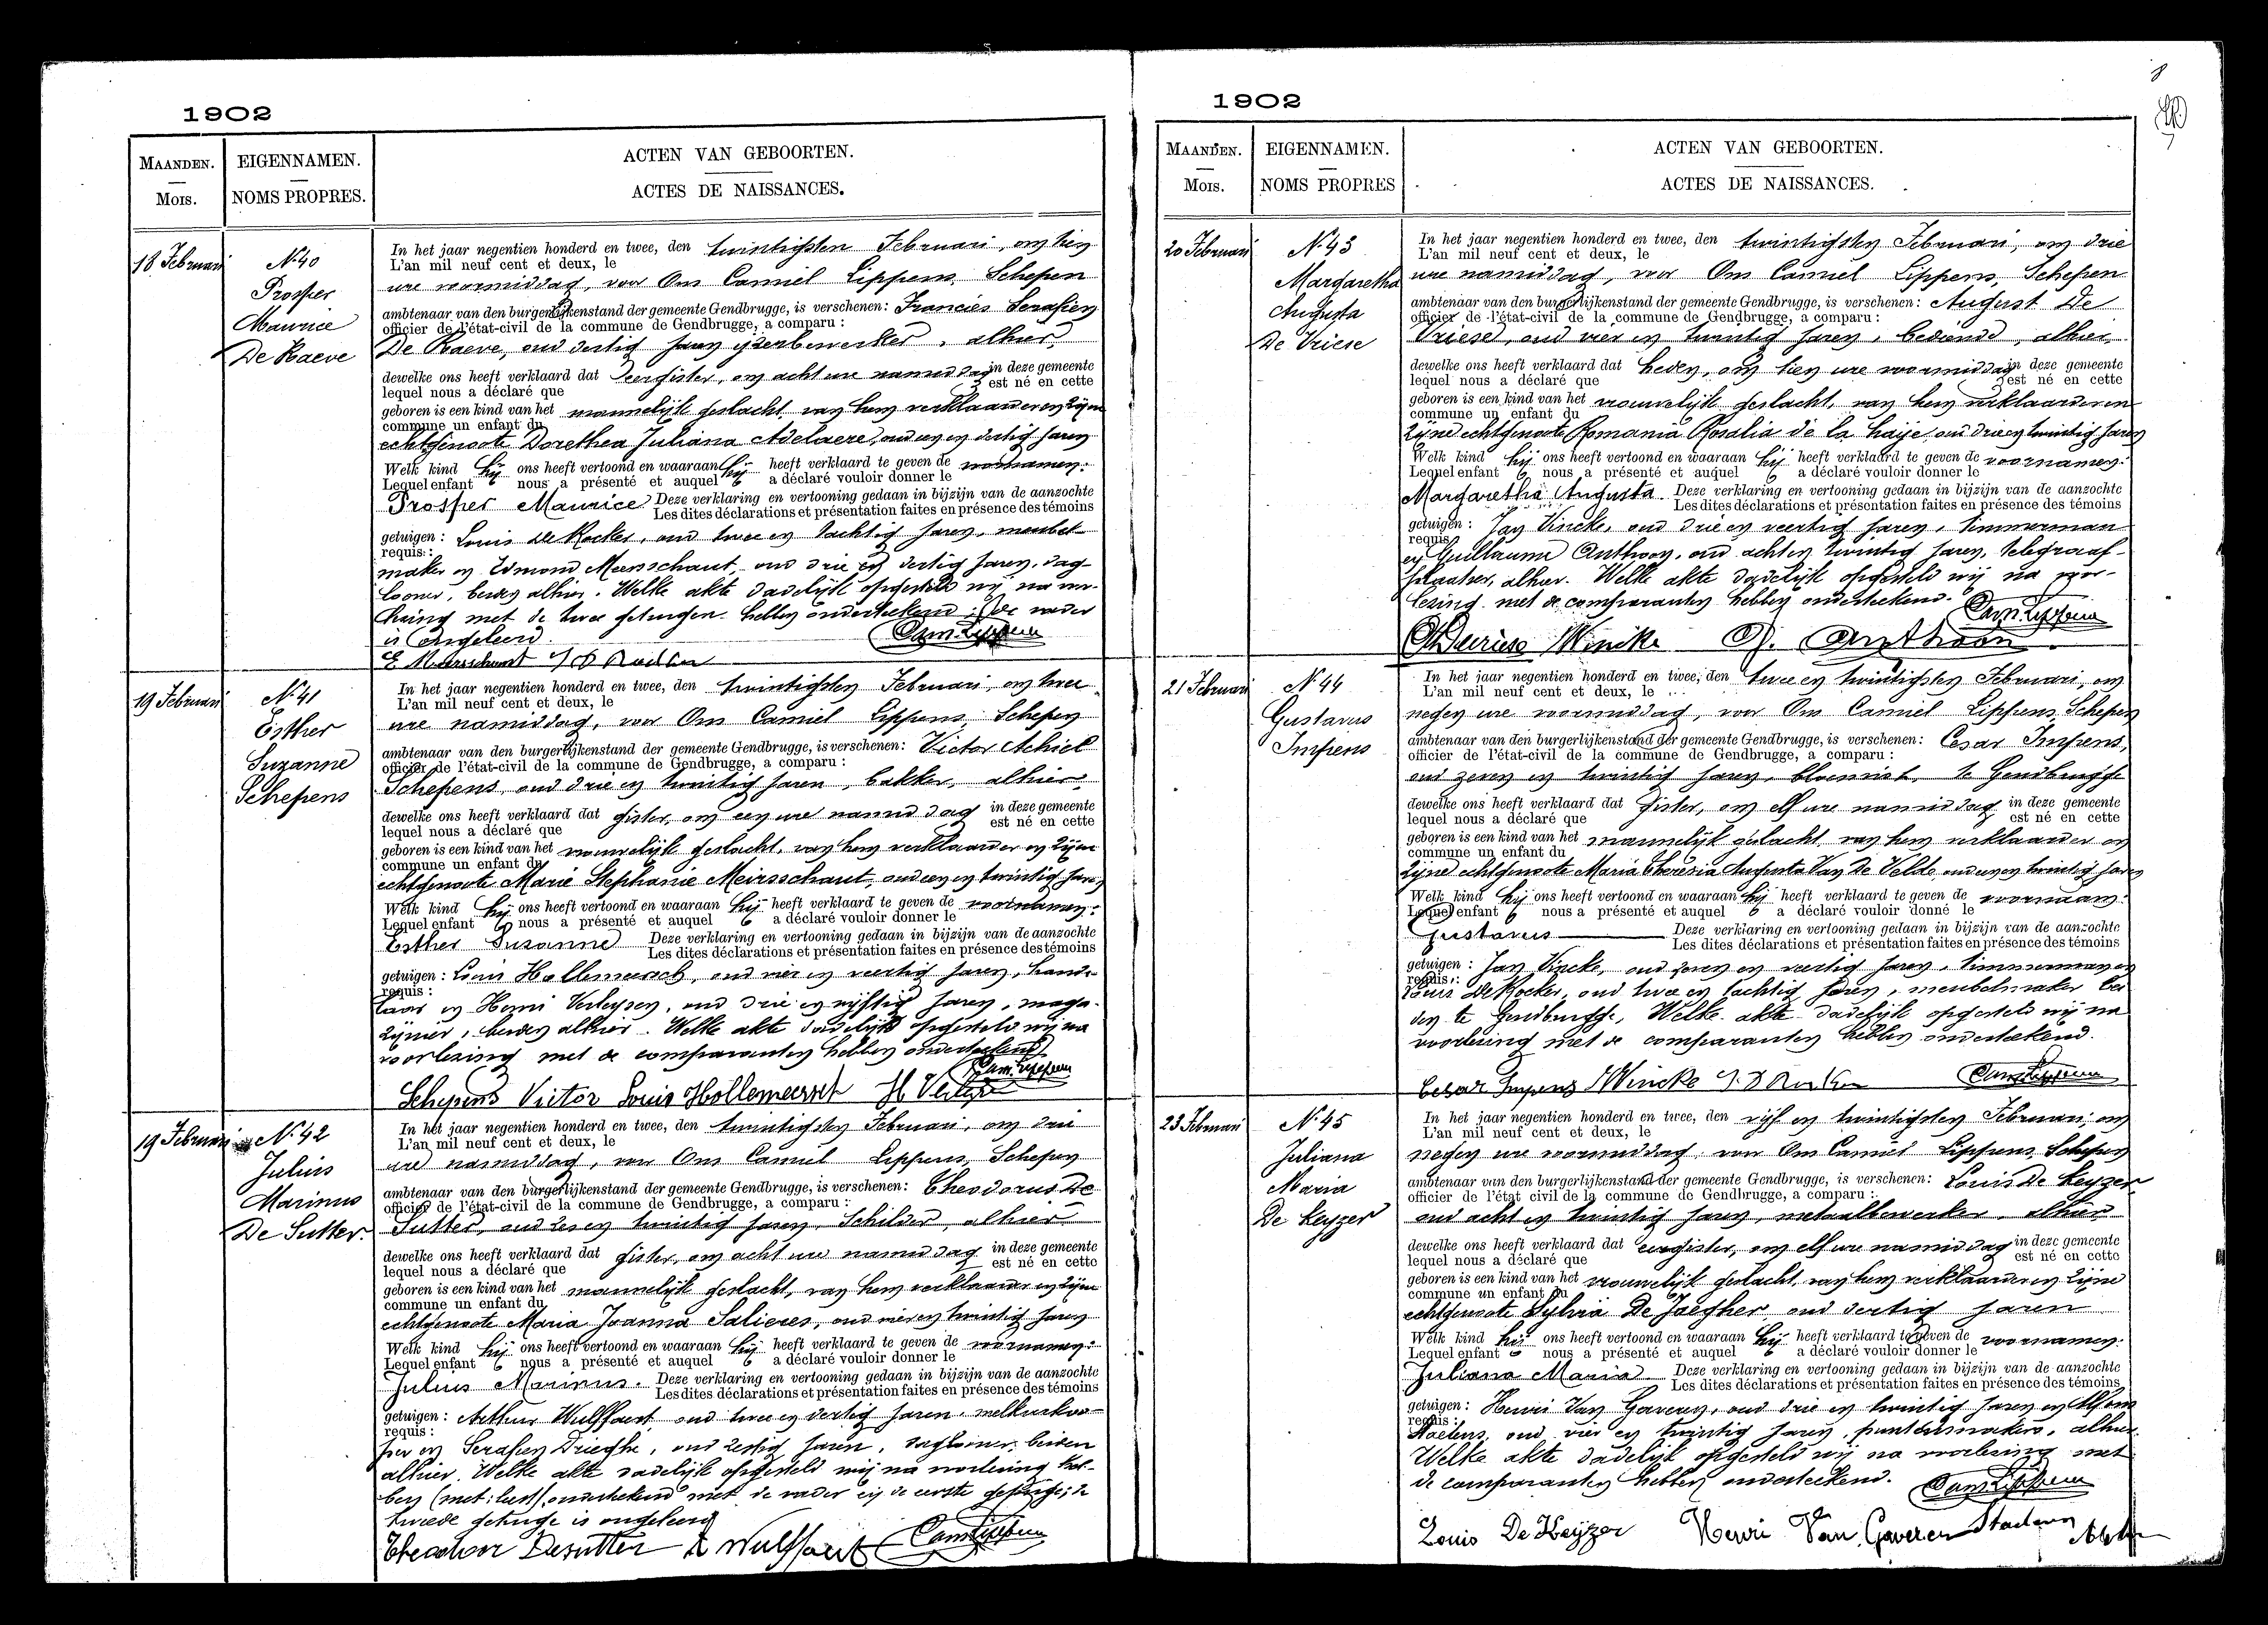 1902
MAANDEN.
MOIS.
EIGENNAMEN.
NOMS PROPRES.
ACTEN VAN GEBOORTEN.
ACTES DE NAISSANCES.
18 Februari
N. 40
Prosper
Maurice
De Raeve
In het jaar negentien honderd en twee, den twintigsten Februari, om tien
L'an mil neuf cent et deux, le
ure voormiddag, voor Ons Camiel Lippens, Schepen
ambtenaar van den burgerlijkenstand der gemeente Gendbrugge, is verschenen: Francies Serafien
officier de l'état-civil de la commune de Gendbrugge, a comparu :
De Raeve, oud dertig jaren ijzerbewerker, alhier,
dewelke ons heeft verklaard dat eergister, om acht ure namiddag in deze gemeente
lequel nous a déclaré que est né en cette
geboren is een kind van het mannelijk geslacht, van hem verklaarder en zijne
commune un enfant du
echtgenoote Dorethea Juliana Adelaere, oud een en dertig jaren
Welk kind hij ons heeft vertoond en waaraan hij heeft verklaard te geven de voornamen:
Lequel enfant nous a présenté et auquel a déclaré vouloir donner le
Prosper Maurice Deze verklaring en vertooning gedaan in bijzijn van de aanzochte
Les dites déclarations et présentation faites en présence des témoins
getuigen : Louis De Rocker, oud twee en tachtig jaren, meubel-
requis :
maker en Edmond Meersschaut, oud drie en dertig jaren, dag-
looner, beiden alhier. Welke akte dadelijk opgesteld wij na voor-
lezing met de twee getuigen hebben onderteekend; De vader
is ongeleerd.
Cam. Lippens
E Meersschaut
19 Februari
N. 41
Esther
Suzanne
Schepens
In het jaar negentien honderd en twee, den twintigsten Februari, om twee
L'an mil neuf cent et deux, le
ure namiddag, voor Ons Camiel Lippens, Schepen
ambtenaar van den burgerlijkenstand der gemeente Gendbrugge, is verschenen: Victor Achiel
officier de l'état-civil de la commune de Gendbrugge, a comparu :
Schepens, oud drie en twintig jaren, bakker, alhier,
dewelke ons heeft verklaard dat gister, om een ure namiddag in deze gemeente
lequel nous a déclaré que est né en cette
geboren is een kind van het vrouwelijk geslacht, van hem verklaarder en zijne
commune un enfant du
echtgenoote Marie Stephanie Meirsschaut, oud een en twintig jaren
Welk kind hij ons heeft vertoond en waaraan hij heeft verklaard te geven de voornamen:
Lequel enfant nous a présenté et auquel a déclaré vouloir donner le
Esther Suzanne Deze verklaring en vertooning gedaan in bijzijn van de aanzochte
Les dites déclarations et présentation faites en présence des témoins
getuigen : Louis Hollemeersch, oud vier en veertig jaren, hande-
requis :
laar en Henri Verleysen, oud drie en vijftig jaren, maga-
zijnier, beiden alhier. Welke akte dadelijk opgesteld wij na
voorlezing met de comparanten hebben onderteekend
Cam. Lippens
Schepens Victor Louis Hollemeersch H Verleysen
19 Februari
N. 42
Julius
Marinus
De Sutter.
In het jaar negentien honderd en twee, den twintigsten Februari, om drie
L'an mil neuf cent et deux, le
ure namiddag, voor Ons Camiel Lippens, Schepen
ambtenaar van den burgerlijkenstand der gemeente Gendbrugge, is verschenen: Theodorus De
officier de l'état-civil de la commune de Gendbrugge, a comparu :
Sutter, oud zes en twintig jaren, Schilder, alhier
dewelke ons heeft verklaard dat gister, om acht ure namiddag in deze gemeente
lequel nous a déclaré que est né en cette
geboren is een kind van het mannelijk geslacht, van hem verklaarder en zijne
commune un enfant du
echtgenoote Maria Joanna Salieres, oud vier en twintig jaren
Welk kind hij ons heeft vertoond en waaraan hij heeft verklaard te geven de voornamen:
Lequel enfant nous a présenté et auquel a déclaré vouloir donner le
Julius Marinus. Deze verklaring en vertooning gedaan in bijzijn van de aanzochte
Les dites déclarations et présentation faites en présence des témoins
getuigen : Arthur Wulffaert oud twee en dertig jaren, melkverkoo-
requis :
per en Serafien Drieghe, oud zestig jaren, daglooner, beiden
alhier. Welke akte dadelijk opgesteld wij na voorlezing heb-
ben onderteekend met de vader en de eerste getuige; de
tweede getuige is ongeleerd
Theodoor Desutter A Wulffaert Cam. Lippens
1902
MAANDEN.
MOIS.
EIGENNAMEN.
NOMS PROPRES
ACTEN VAN GEBOORTEN.
ACTES DE NAISSANCES.
20 Februari
N. 43
Margaretha
Augusta
De Vriese
In het jaar negentien honderd en twee, den twintigsten Februari, om drie
L'an mil neuf cent et deux, le
ure namiddag, voor Ons Camiel Lippens, Schepen
ambtenaar van den burgerlijkenstand der gemeente Gendbrugge, is verschenen: August De
officier de l'état-civil de la commune de Gendbrugge, a comparu :
Vriese, oud vier en twintig jaren, bediende, alhier,
dewelke ons heeft verklaard dat heden, om tien ure voormiddag in deze gemeente
lequel nous a déclaré que est né en cette
geboren is een kind van het vrouwelijk geslacht, van hem verklaarder en
commune un enfant du
zijne echtgenoote Romania Rosalia de la Haije, oud drie en twintig jaren
Welk kind hij ons heeft vertoond en waaraan hij heeft verklaard te geven de voornamen:
Lequel enfant nous a présenté et auquel a déclaré vouloir donner le
Margaretha Augusta Deze verklaring en vertooning gedaan in bijzijn van de aanzochte
Les dites déclarations et présentation faites en présence des témoins
getuigen : Jan Vincke, oud drie en veertig jaren, timmerman
requis
en Guillaume Anthoon, oud acht en twintig jaren, telegraaf-
plaatser, alhier. Welke akte dadelijk opgesteld wij na voor-
lezing met de comparanten hebben onderteekend.
Cam. Lippens
Devriese Wincke Anthoon
21 Februari
N. 44
Gustavus
Impens
In het jaar negentien honderd en twee, den twee en twintigsten Februari, om
L'an mil neuf cent et deux, le
negen ure voormiddag, voor Ons Camiel Lippens, Schepen
ambtenaar van den burgerlijkenstand der gemeente Gendbrugge, is verschenen: Cesar Impens,
officier de l'état-civil de la commune de Gendbrugge, a comparu :
oud zeven en twintig jaren, bloemist, te Gendbrugge
dewelke ons heeft verklaard dat gister, om elf ure namiddag in deze gemeente
lequel nous a déclaré que est né en cette
geboren is een kind van het mannelijk geslacht van hem verklaarder en
commune un enfant du
zijne echtgenoote Maria Theresia Augusta Van De Velde, oud en twintig jaren
Welk kind hij ons heeft vertoond en waaraan hij heeft verklaard te geven de voornaam:
Lequel enfant nous a présenté et auquel a déclaré vouloir donné le
Gustavus Deze verklaring en vertooning gedaan in bijzijn van de aanzochte
Les dites déclarations et présentation faites en présence des témoins
getuigen : Jan Vincke, oud zeven en veertig jaren, timmerman en
requis :
Louis De Rocker, oud twee en tachtig jaren, meubelmaker bei
den te Gendbrugge, Welke akte dadelijk opgesteld wij na
voorlezing met de comparanten hebben onderteekend.
Cesar Impens Wincke Cam. Lippens
23 Februari
N. 45
Juliana
Maria
De Keyzer
In het jaar negentien honderd en twee, den vijf en twintigsten Februari, om
L'an mil neuf cent et deux, le
negen ure voormiddag, voor Ons Camiel Lippens Schepen
ambtenaar van den burgerlijkenstand der gemeente Gendbrugge, is verschenen: Louis De Keyzer
officier de l'état civil de la commune de Gendbrugge, a comparu :
oud acht en twintig jaren, metaalbewerker, alhier
dewelke ons heeft verklaard dat eergister, om elf ure namiddag in deze gemeente
lequel nous a déclaré que est né en cette
geboren is een kind van het vrouwelijk geslacht, van hem verklaarder en zijne
commune un enfant du
echtgenoote Sylvia De Jaegher, oud dertig jaren
Welk kind hij ons heeft vertoond en waaraan hij heeft verklaard te geven de voornamen:
Lequel enfant nous a présenté et auquel a déclaré vouloir donner le
Juliana Maria Deze verklaring en vertooning gedaan in bijzijn van de aanzochte
Les dites déclarations et présentation faites en présence des témoins
getuigen : Henri Van Gaveren, oud drie en twintig jaren en Alfons
requis :
Staelens, oud vier en twintig jaren, alhier
Welke akte dadelijk opgesteld wij na voorlezing met
de comparanten hebben onderteekend. Cam. Lippens
Louis De Keyzer Henri Van Gaveren